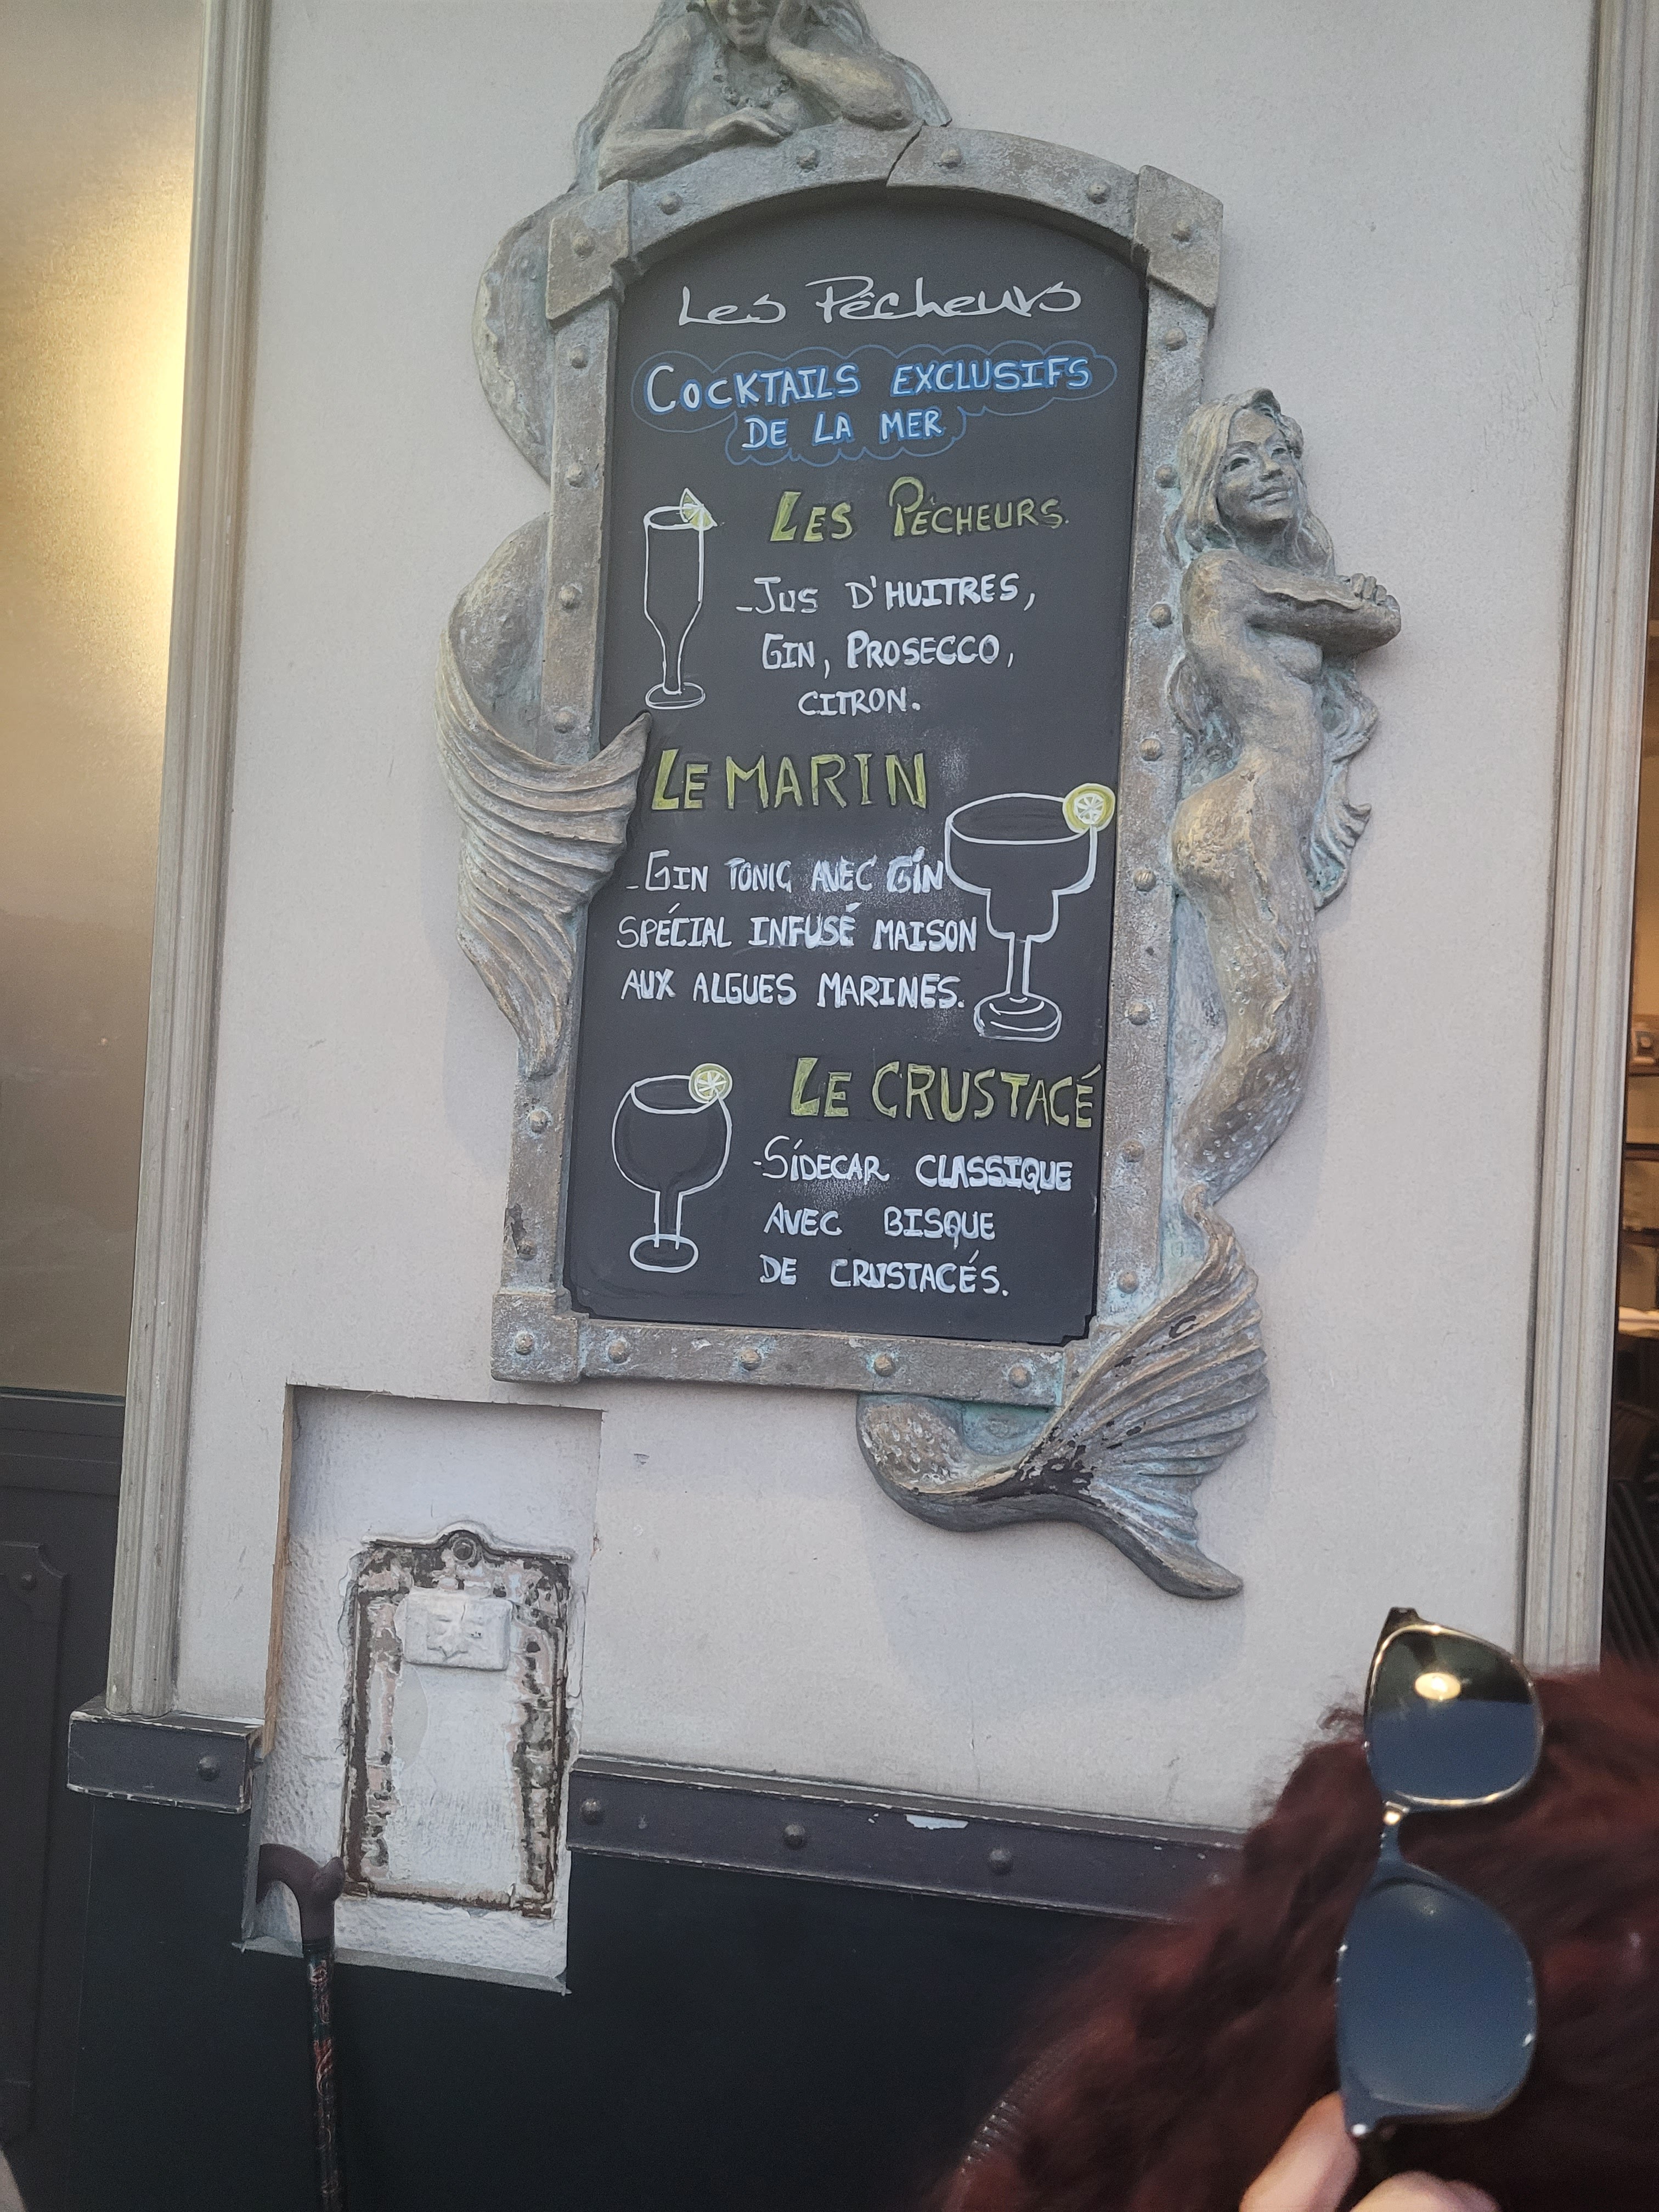 Les Pêcheurs
COCKTAILS EXCLUSIFS
DE LA MER
LES PÊCHEURS.
-JUS D'HUITRES,
GIN, PROSECCO,
CITRON.
LE MARIN
-GIN TONIC AVEC GIN
SPÉCIAL INFUSÉ MAISON
AUX ALGUES MARINES.
LE CRUSTACÉ
-SIDECAR CLASSIQUE
AVEC BISQUE
DE CRUSTACÉS.